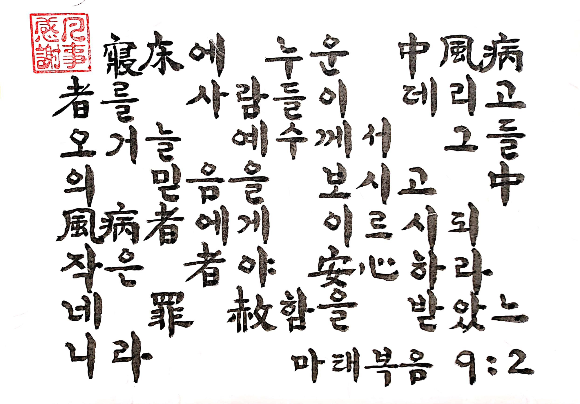 凡事感謝
寢床에 누운 中風病
者를 사람들이 데리고
오거늘 예수께서 그들
의 믿음을 보시고 中
風病者에게 이르시되
작은 者야 安心하라
네 罪 赦함을 받았느
니라 마태복음 9:2